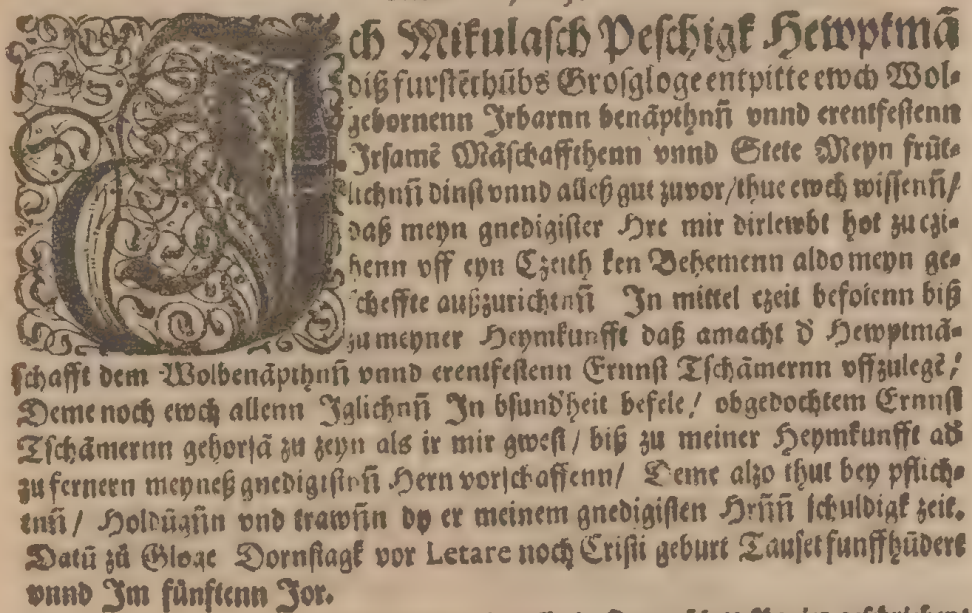 Ich Mikulasch Peschigk Hewptmā
diß furstēthūbs Grosgloge entpitte ewch Wol=
gebornenn Irbarnn benāpthnn̄ vnnd erentfestenn
Irsamē Māschaffthenn vnnd Stete Meyn frūt=
lichnn̄ dinst vnnd alleß gut zuvor/thue ewch wissenn̄/
daß meyn gnedigister Hre mir dirlewbt hot zu czi=
henn vff eyn Czeith ken Behemenn aldo meyn ge=
scheffte außzurichtnn̄ In mittel czeit befolenn biß
zu meyner Heymkunfft daß amacht d̄ Hewptmā=
schafft dem Wolbenāpthnn̄ vnnd erentfestenn Ernnst Tschāmernn vffzulegē/
Deme noch ewch allenn Iglichnn̄ In bsund̄heit befele/ obgedochtem Ernnst
Tschāmernn gehorsā zu zeyn als ir mir gwest/ biß zu meiner Heymkunfft ad̄
zu fernern meyneß gnedigistnn̄ Hern vorschaffenn/ Deme alzo thut bey pflich=
tnn̄/ Holdūgn̄n vnd trawn̄n dy er meinem gnedigisten Hrn̄n̄ schuldigk zeit.
Datū zū Gloge Dornstagk vor Letare noch Cristi geburt Tauset funffhūdert
vnnd Im fūnftenn Jor.